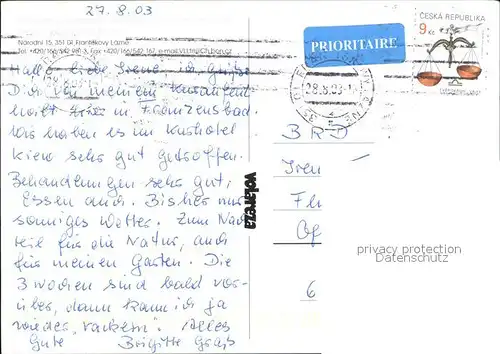 27.8.03
Národní 15, 351 01 Františkovy Lázně
Tel. +420/166/542 961-3, Fax: +420/166/542 167
PRIORITAIRE
ČESKÁ REPUBLIKA
9 Kč
28.8.03-1
Hallo, liebe Irene, ich grüße
Dich von meinem Kuraufent-
halt in Franzensbad.
Wir haben es im Kurhotel
hier sehr gut getroffen.
Behandlungen sehr gut,
Essen auch. Bisher nur
sonniges Wetter. Zum Nach
teil für die Natur, auch
für meinen Garten. Die
3 Wochen sind bald vor-
über, dann kann ich ja
wieder "rackern". Alles
Gute Brigitte
volareza
BRD
Iren
6
privacy protection
Datenschutz